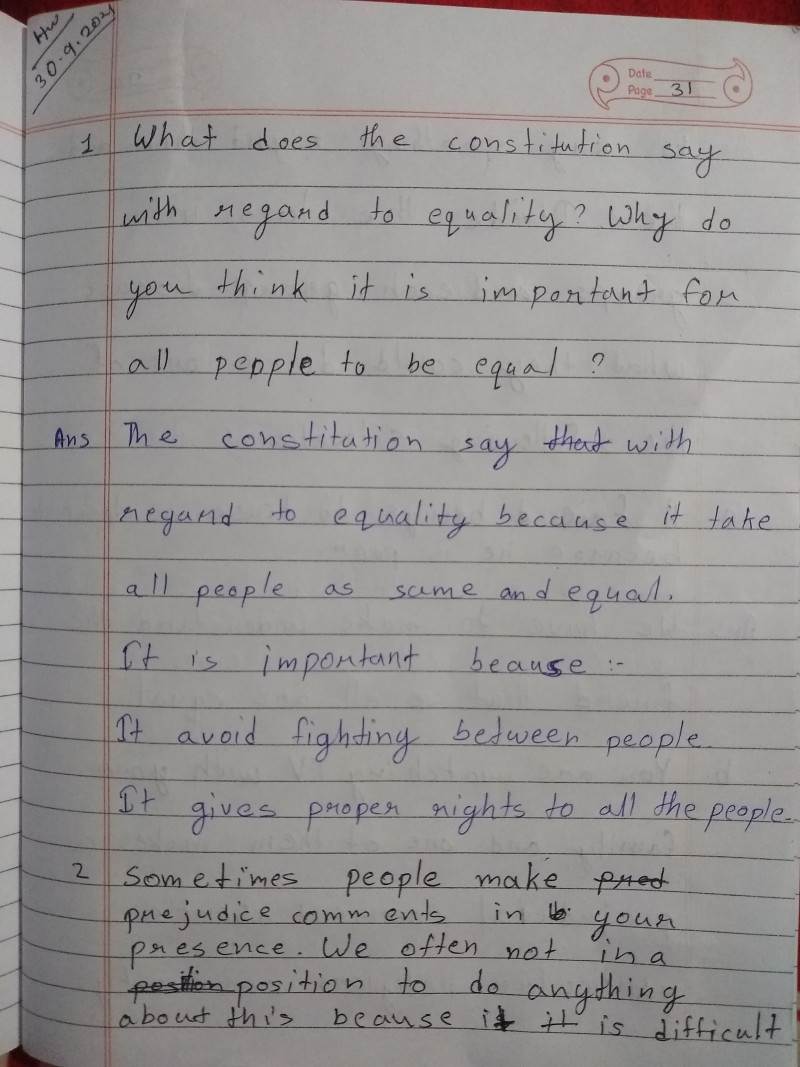 Hw
30.9.2021
Date
Page 31
1 What does the constitution say
with regard to equality? Why do
you think it is important for
all pepple to be equal ?
Ans The constitution say that with
regard to equality because it take
all people as same and equal.
It is important beause :-
It avoid fighting between people.
It gives proper rights to all the people.
2 Sometimes people make pred
prejudice comments in your
presence. We often not in a
position position to do anything
about this beause it it is difficult